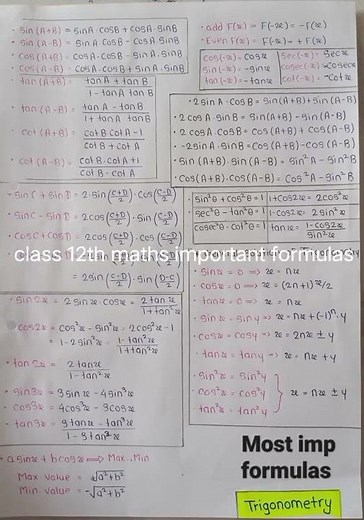 • sin(A+B) = sinA·cosB + cosA·sinB
• sin(A-B) = sinA·cosB - cosA·sinB
• cos(A+B) = cosA·cosB - sinA·sinB
• cos(A-B) = cosA·cosB + sinA·sinB
• tan(A+B) = tanA + tanB / 1 - tanA tanB
• tan(A-B) = tanA - tanB / 1 + tanA tanB
• cot(A+B) = cotB cotA - 1 / cotB + cotA
• cot(A-B) = cotB·cotA+1 / cotB - cotA
• add F(x) = F(-x) = -F(x)
• Even F(x) = F(-x) = +F(x)
cos(-x) = cosx
sin(-x) = -sinx
tan(-x) = -tanx
sec(-x) = Secx
cosec(-x) = -Cosecx
cot(-x) = -Cotx
• 2 sinA·cosB = sin(A+B) + sin(A-B)
• 2 cosA·sinB = sin(A+B) - sin(A-B)
• 2 cosA·cosB = cos(A+B) + cos(A-B)
• -2 sinA·sinB = cos(A+B) - cos(A-B)
• sin(A+B)·sin(A-B) = sin²A - sin²B
• cos(A+B)·cos(A-B) = cos²A - sin²B
• sinC + sinD = 2·sin(C+D/2)·cos(C-D/2)
• sinC - sinD = 2cos(C+D/2)·sin(C-D/2)
cosC + cosD = 2cos(C+D/2)·cos(C-D/2)
= 2sin(C-D/2)·sin(D-C/2)
sin²θ + cos²θ = 1
sec²θ - tan²θ = 1
cosec²θ - cot²θ = 1
1+cos2x = 2cos²x
1-cos2x = 2sin²x
tanx = 1-cos2x / sin2x
class 12th maths important formulas
• sin2x = 2 sinx cosx = 2tanx / 1+tan²x
• cos2x = cos²x - sin²x = 2cos²x - 1
= 1 - 2sin²x = 1-tan²x / 1+tan²x
• tan2x = 2tanx / 1-tan²x
• sin3x = 3sinx - 4sin³x
• cos3x = 4cos³x - 3cosx
• tan3x = 3tanx - tan³x / 1 - 3tan²x
• sinx = 0 ⟹ x = nπ
• cosx = 0 ⟹ x = (2n+1)π/2
• tanx = 0 ⟹ x = nπ
• sinx = siny ⟹ x = nπ + (-1)ⁿ·y
• cosx = cosy ⟹ x = 2nπ ± y
• tanx = tany ⟹ x = nπ + y
• sin²x = sin²y
cos²x = cos²y } x = nπ ± y
tan²x = tan²y
• a sinx + b cosx ⟹ Max, Min
Max value = √a²+b²
Min value = -√a²+b²
Most imp
formulas
Trigonometry